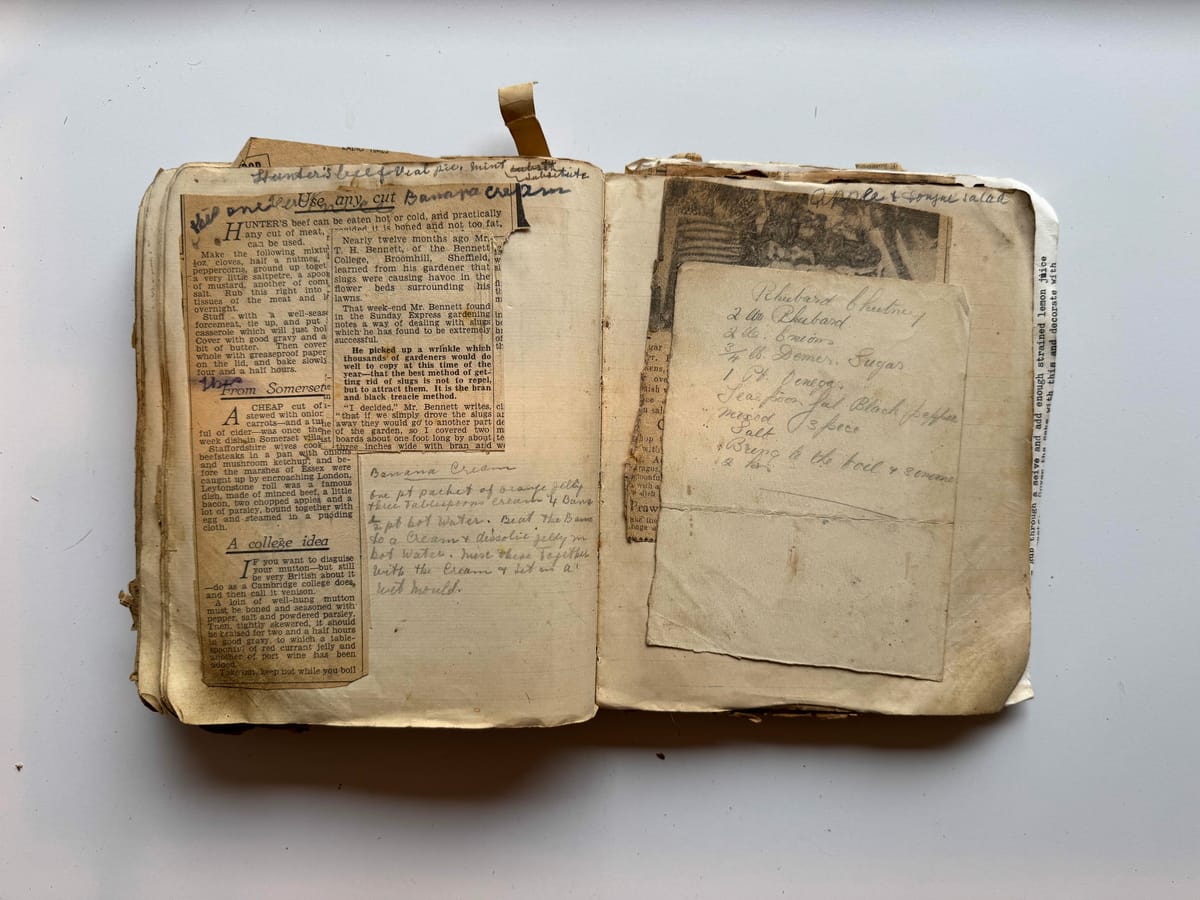 Hunter's beef & Veal pie. mint substitute
Banana Cream
Use any cut
HUNTER'S beef can be eaten hot or cold, and practically
any cut of meat, provided it is boned and not too fat,
can be used.
Make the following mixtu
½oz. cloves, half a nutmeg,
peppercorns, ground up toget
a very little saltpetre, a spoon
of mustard, another of com
salt. Rub this right into
tissues of the meat and l
overnight.
Stuff with a well-seas
forcemeat, tie up, and put
casserole which will just hol
Cover with good gravy and a
bit of butter. Then cover
whole with greaseproof paper
on the lid, and bake slowl
four and a half hours.
From Somerset
A CHEAP cut of
stewed with onion
carrots—and a tu
ful of cider—was once the
week dish in Somerset villa
Staffordshire wives cook
beefsteaks in a pan with onions
and mushroom ketchup, and be-
fore the marshes of Essex were
caught up by encroaching London,
Leytonstone roll was a famous
dish, made of minced beef, a little
bacon, two chopped apples and a
lot of parsley, bound together with
egg and steamed in a pudding
cloth.
A college idea
IF you want to disguise
your mutton—but still
be very British about it
—do as a Cambridge college does,
and then call it venison.
A join of well-hung mutton
must be boned and seasoned with
pepper, salt and powdered parsley.
Then, tightly skewered, it should
be braised for two and a half hours
in good gravy, to which a table-
spoonful of red currant jelly and
another of port wine has been
added.
Take out, keep hot while you boil
Nearly twelve months ago Mr.
T. H. Bennett, of the Bennett
College, Broomhill, Sheffield,
learned from his gardener that
slugs were causing havoc in the
flower beds surrounding his
lawns.
That week-end Mr. Bennett found
in the Sunday Express gardening
notes a way of dealing with slugs
which he has found to be extremely
successful.
He picked up a wrinkle which
thousands of gardeners would do
well to copy at this time of the
year—that the best method of get-
ting rid of slugs is not to repel,
but to attract them. It is the bran
and black treacle method.
"I decided," Mr. Bennett writes,
"that if we simply drove the slugs
away they would go to another part
of the garden, so I covered two
boards about one foot long by about
three inches wide with bran and
Banana Cream
One pt packet of orange jelly
three tablespoons Cream 4 Bana
½ pt hot Water. Beat the Bana
to a Cream & dissolve jelly in
hot water. Mix these together
with the Cream & set in a
wet mould.
Apple & tongue salad
Rhubard Chutney
2 lbs Rhubard
2 lbs. Onions
¾ lb. Demer. Sugar
1 Pt. Venegar
Teaspoon ful Black pepper
mixed Spice
Salt
Bring to the boil & simmer
2 hrs
rub through a seive and add enough strained lemon juice
with this and decorate with